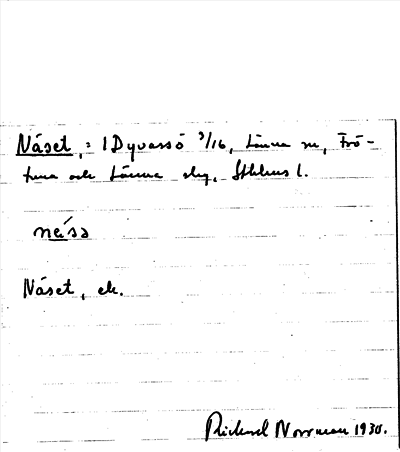 Näset, = 1 Dyvassö 3/16, Länna sn, Frö-
tuna och Länna slg, Sthlms l.
nę́sə
Näset, ek.
Rickard Norrman 1930.